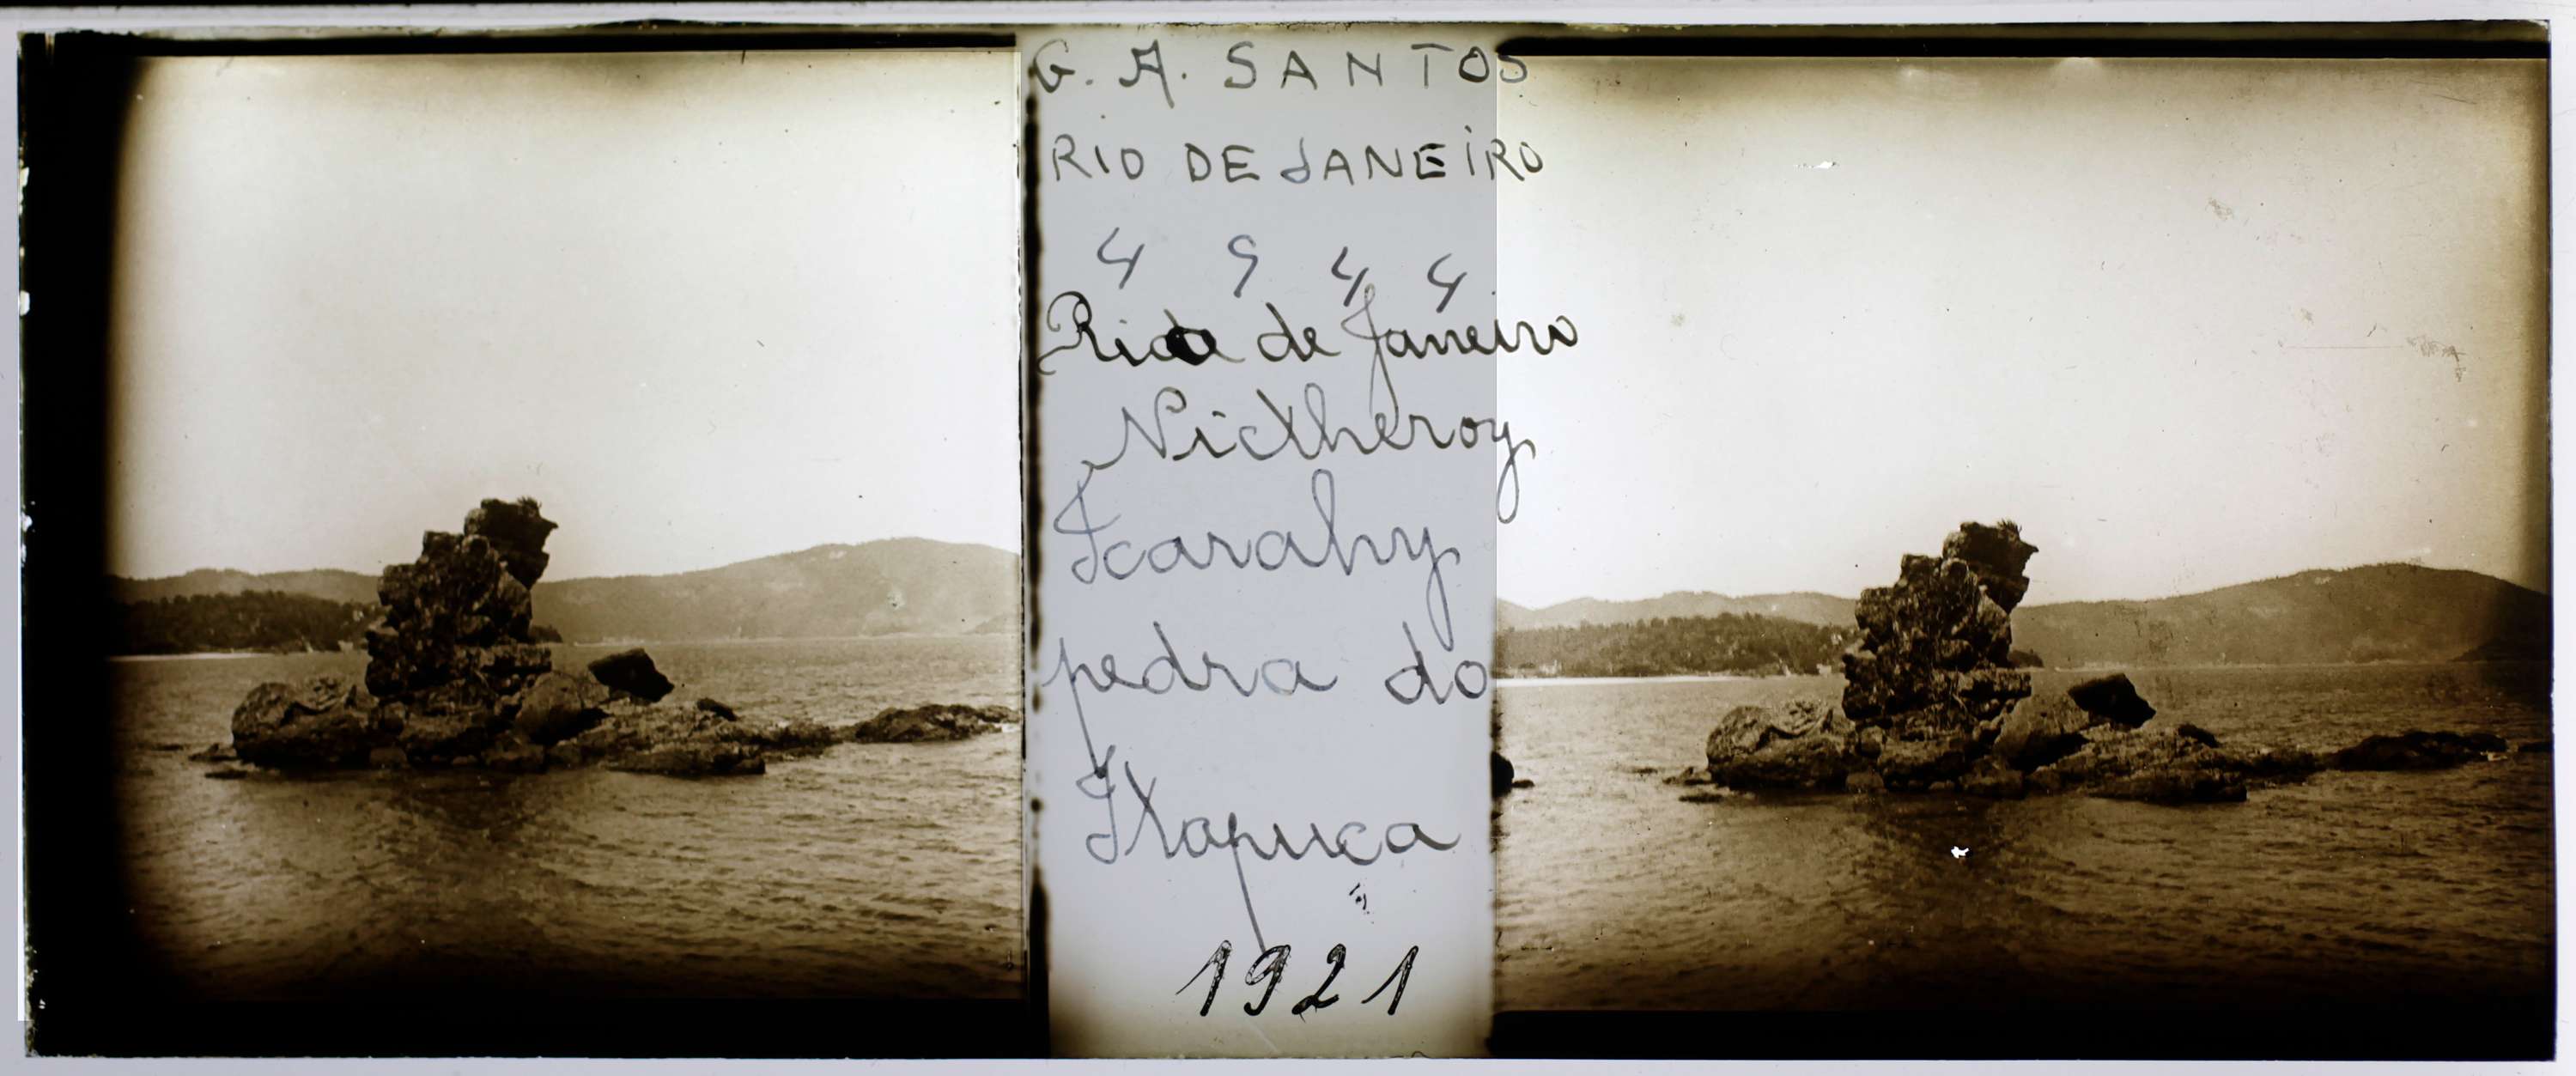 G. A. SANTOS
RIO DE JANEIRO
4 9 4 4
Rio de Janeiro
Nictheroy
Icarahy
pedra do
Itapuca
1921